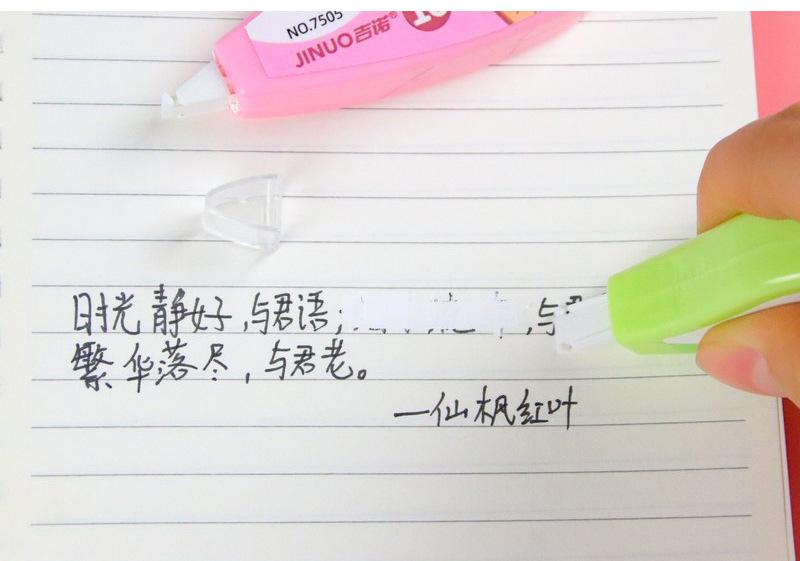 NO.7505
JINUO吉诺®
时光静好,与君语;,与
繁华落尽,与君老。
—仙枫红叶